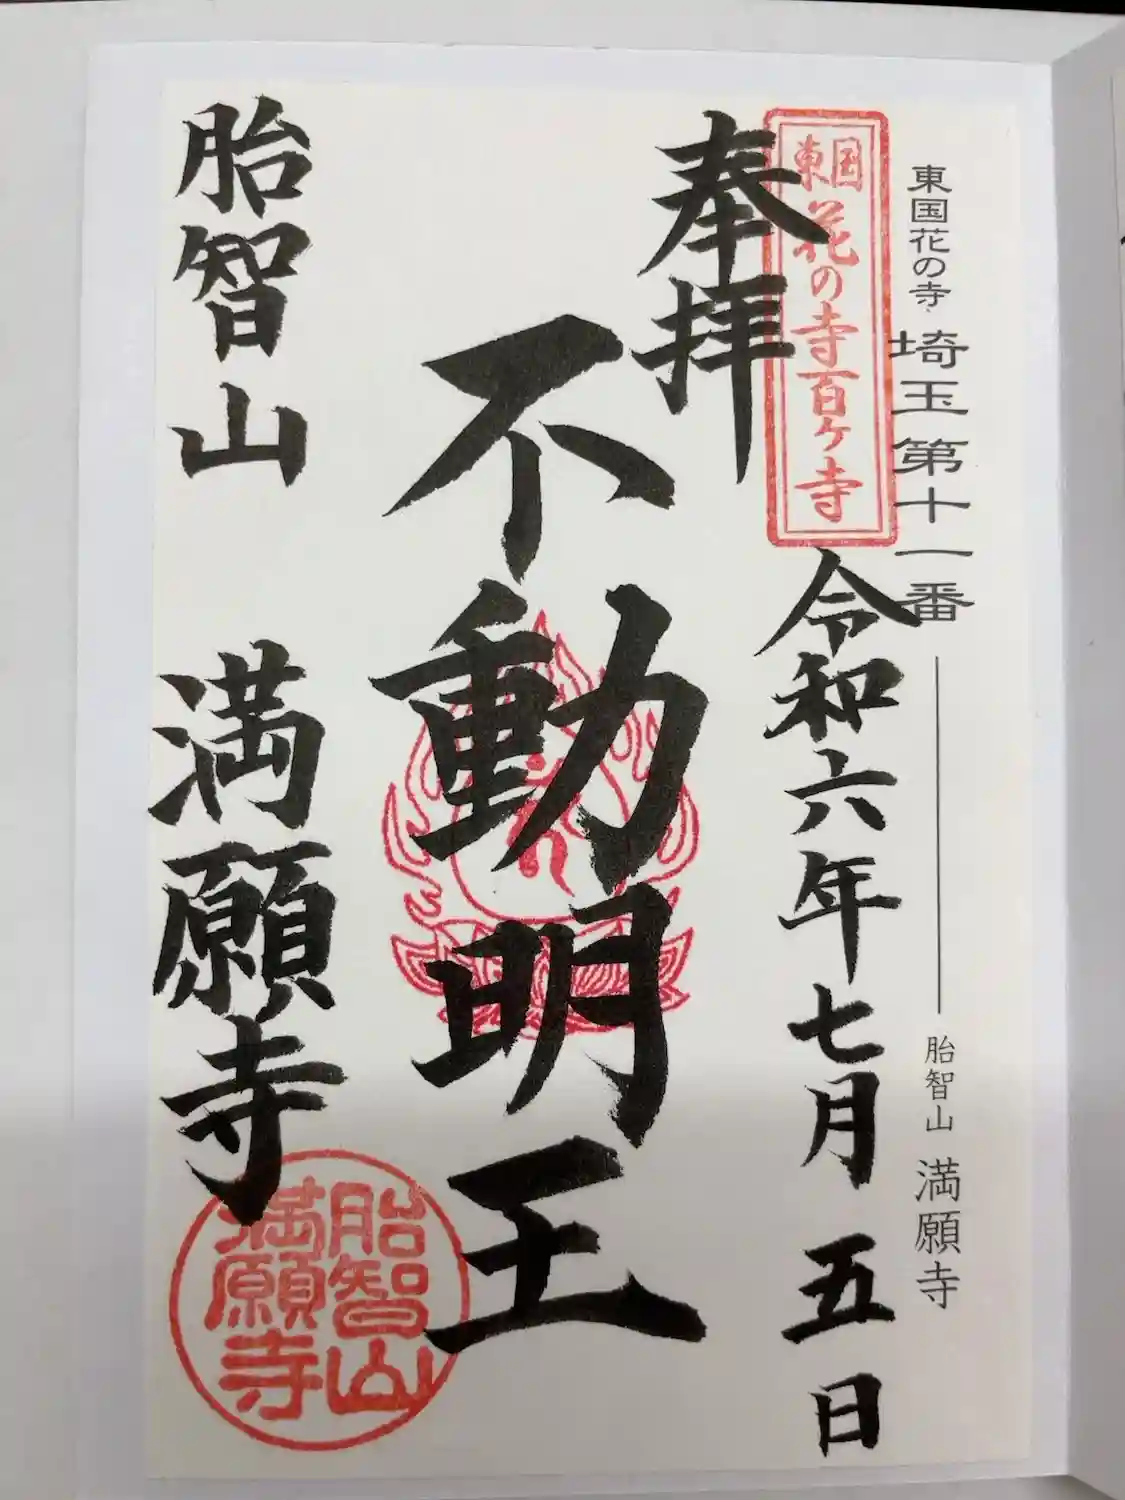 東国花の寺 埼玉第十一番 胎智山 満願寺
東国花の寺百ケ寺
奉拝 令和六年七月五日
不動明王
胎智山 満願寺
胎智山
満願寺